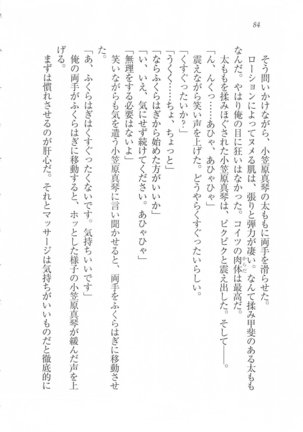 84
そう問いかけながら、小笠原真琴の太ももに両手を滑らせた。
ローションによってヌメる肌は、張りと弾力が凄い。なんて揉み甲斐のある太もも
なんだ。やはり俺の目に狂いはなかった。コイツの肉体は最高だ。
太ももを揉みほぐされた小笠原真琴は、ビクビクと震え出した。そして――。
「ん、んくっ……あひゃ、あひゃひゃ」
震えながら笑い声を上げた。どうやらくすぐったいらしい。
「くすぐったいか？」
「うくく……ちょ、ちょっと」
「ならふくらはぎから始めた方がいいか？」
「い、いえ、気にせず続けてください。あひゃひゃ」
「無理をする必要はない」
笑いながらも気を遣う小笠原真琴に言い聞かせると、両手をふくらはぎに移動させ
た。
「あ、ふくらはぎはくすぐったくないです。気持ちいいです」
俺の両手がふくらはぎに移動すると、ホッとした様子の小笠原真琴が緩んだ声を上
げる。
まずは慣れさせるのが肝心だ。それとマッサージは気持ちがいいものだと徹底的に